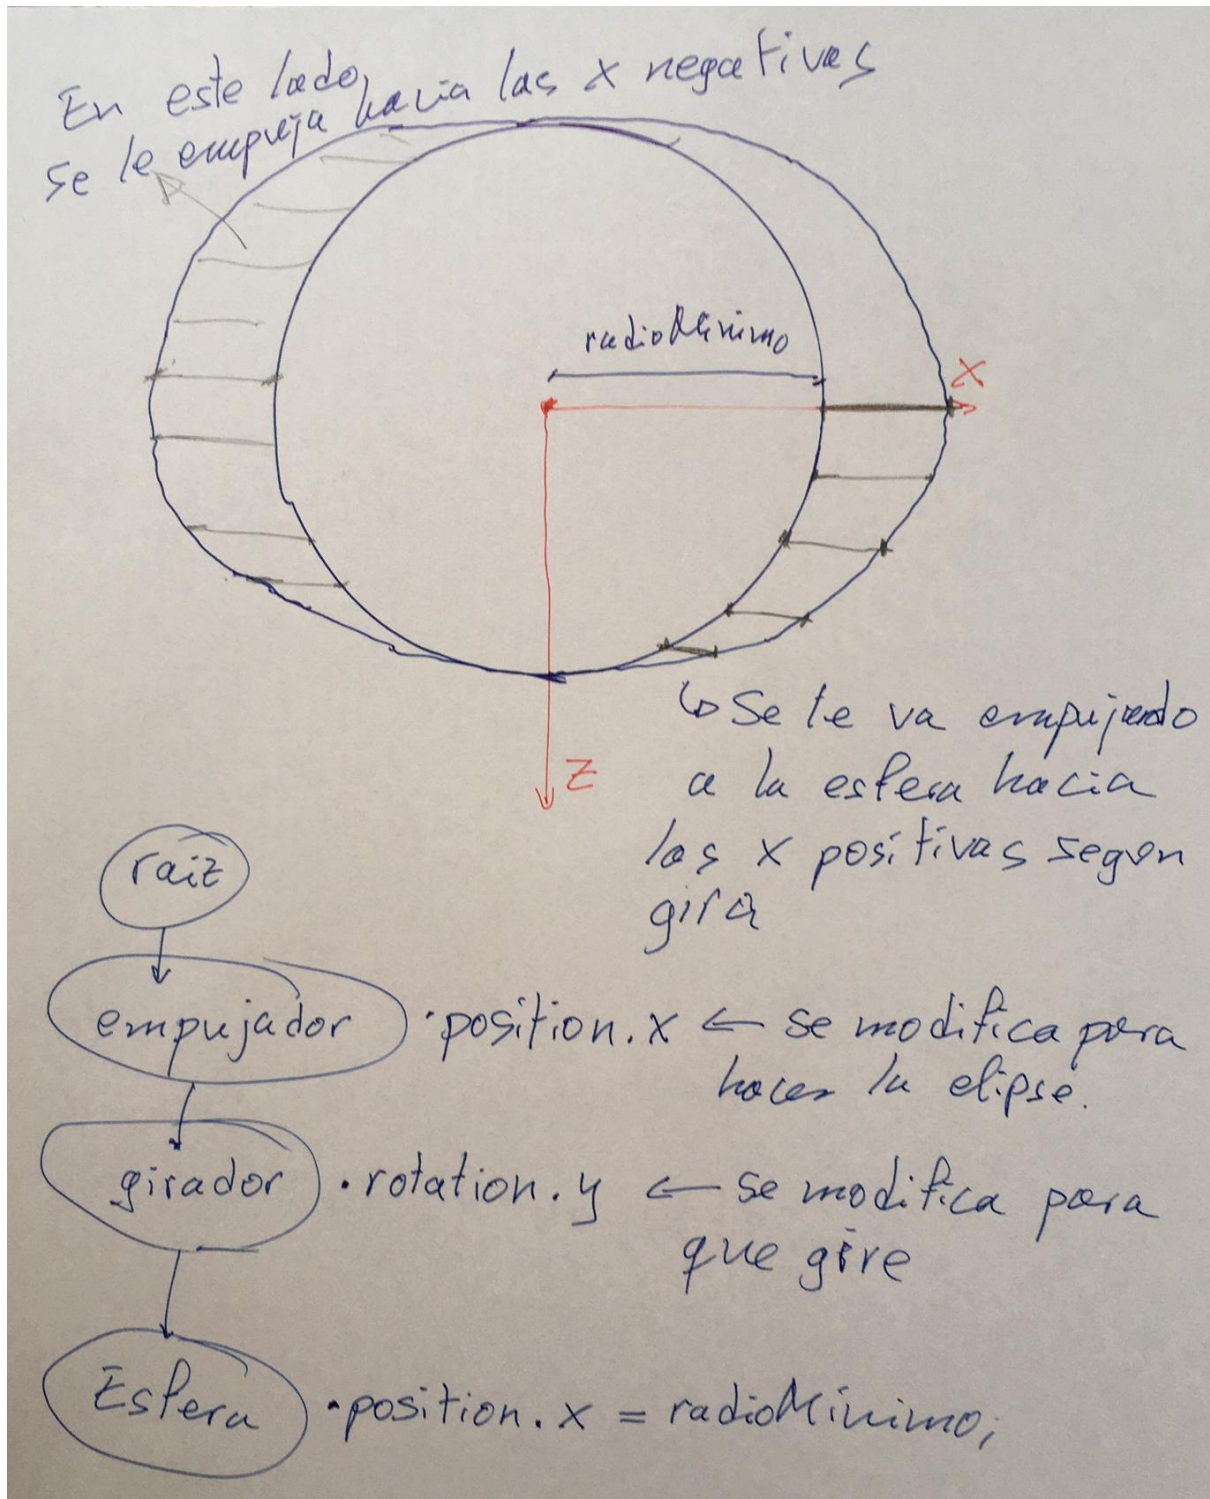 En este lado,
se le empuja hacia las x negativas
radioMinimo
X
Z
↳ Se le va empujando
a la esfera hacia
las x positivas segun
gira
raiz
empujador .position.x ← se modifica para
hacer la elipse.
girador .rotation.y ← se modifica para
que gire
Esfera .position.x = radioMinimo;